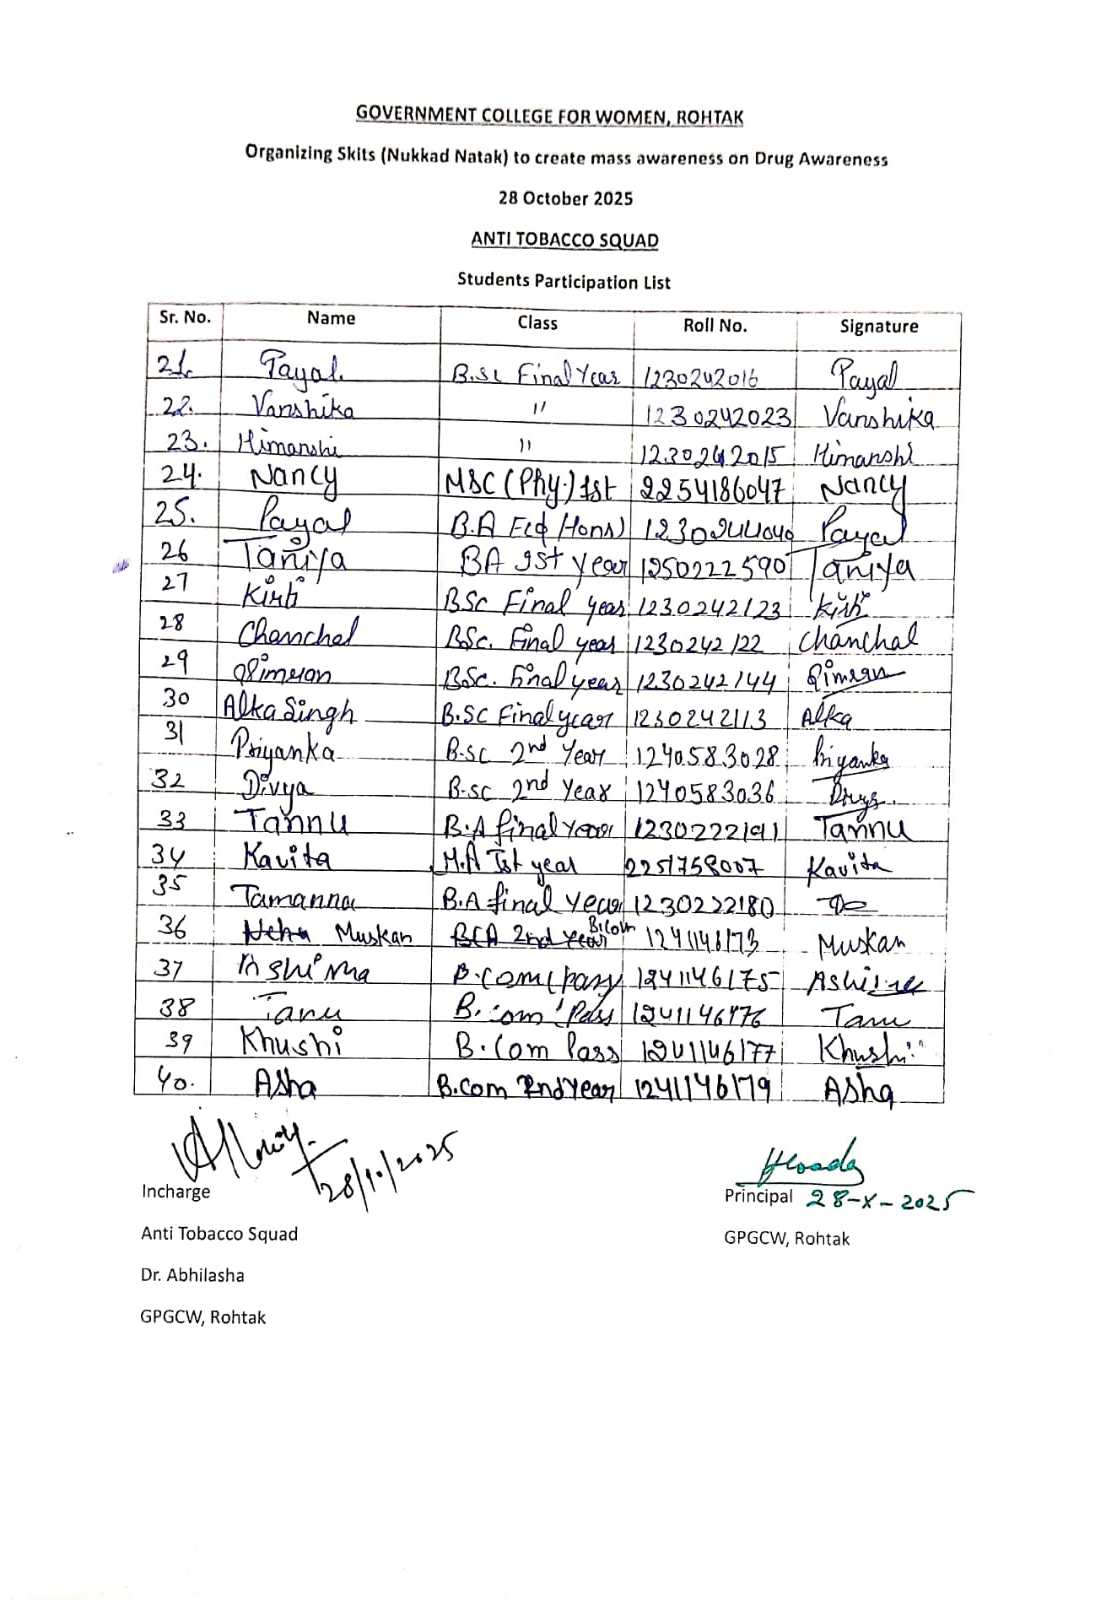 GOVERNMENT COLLEGE FOR WOMEN, ROHTAK
Organizing Skits (Nukkad Natak) to create mass awareness on Drug Awareness
28 October 2025
ANTI TOBACCO SQUAD
Students Participation List
Sr. No. Name Class Roll No. Signature
21. Payal. B.Sc Final Year 1230242016 Payal
22. Vanshika " 1230242023 Vanshika
23. Himanshi " 1230242015 Himanshi
24. Nancy MSC (Phy.) 1st 2254186047 Nancy
25. Payal B.A Eco (Hons) 1230244040 Payal
26 Taniya BA 1st year 1250222590 Taniya
27 Kirti BSc Final year 1230242123 Kirti
28 Chanchal BSc. Final year 1230242122 Chanchal
29 Simran BSc. Final year 1230242144 Simran
30 Alka Singh B.SC Final year 1230242113 Alka
31 Priyanka B.sc 2nd Year 1240583028 Priyanka
32 Divya B.sc 2nd Year 1240583036 Divya
33 Tannu B.A final year 1230222191 Tannu
34 Kavita M.A Ist year 2251758007 Kavita
35 Tamanna B.A final year 1230222180
36 Neha Muskan BCA 2nd year B.com 1241146173 Muskan
37 Ashima B.com (pass) 1241146175 Ashima
38 Tanu B.com Pass 1241146176 Tanu
39 Khushi B.Com Pass 1241146177 Khushi
40. Asha B.com 2nd Year 1241146179 Asha
28/10/2025
Incharge Principal 28-X-2025
Anti Tobacco Squad GPGCW, Rohtak
Dr. Abhilasha
GPGCW, Rohtak